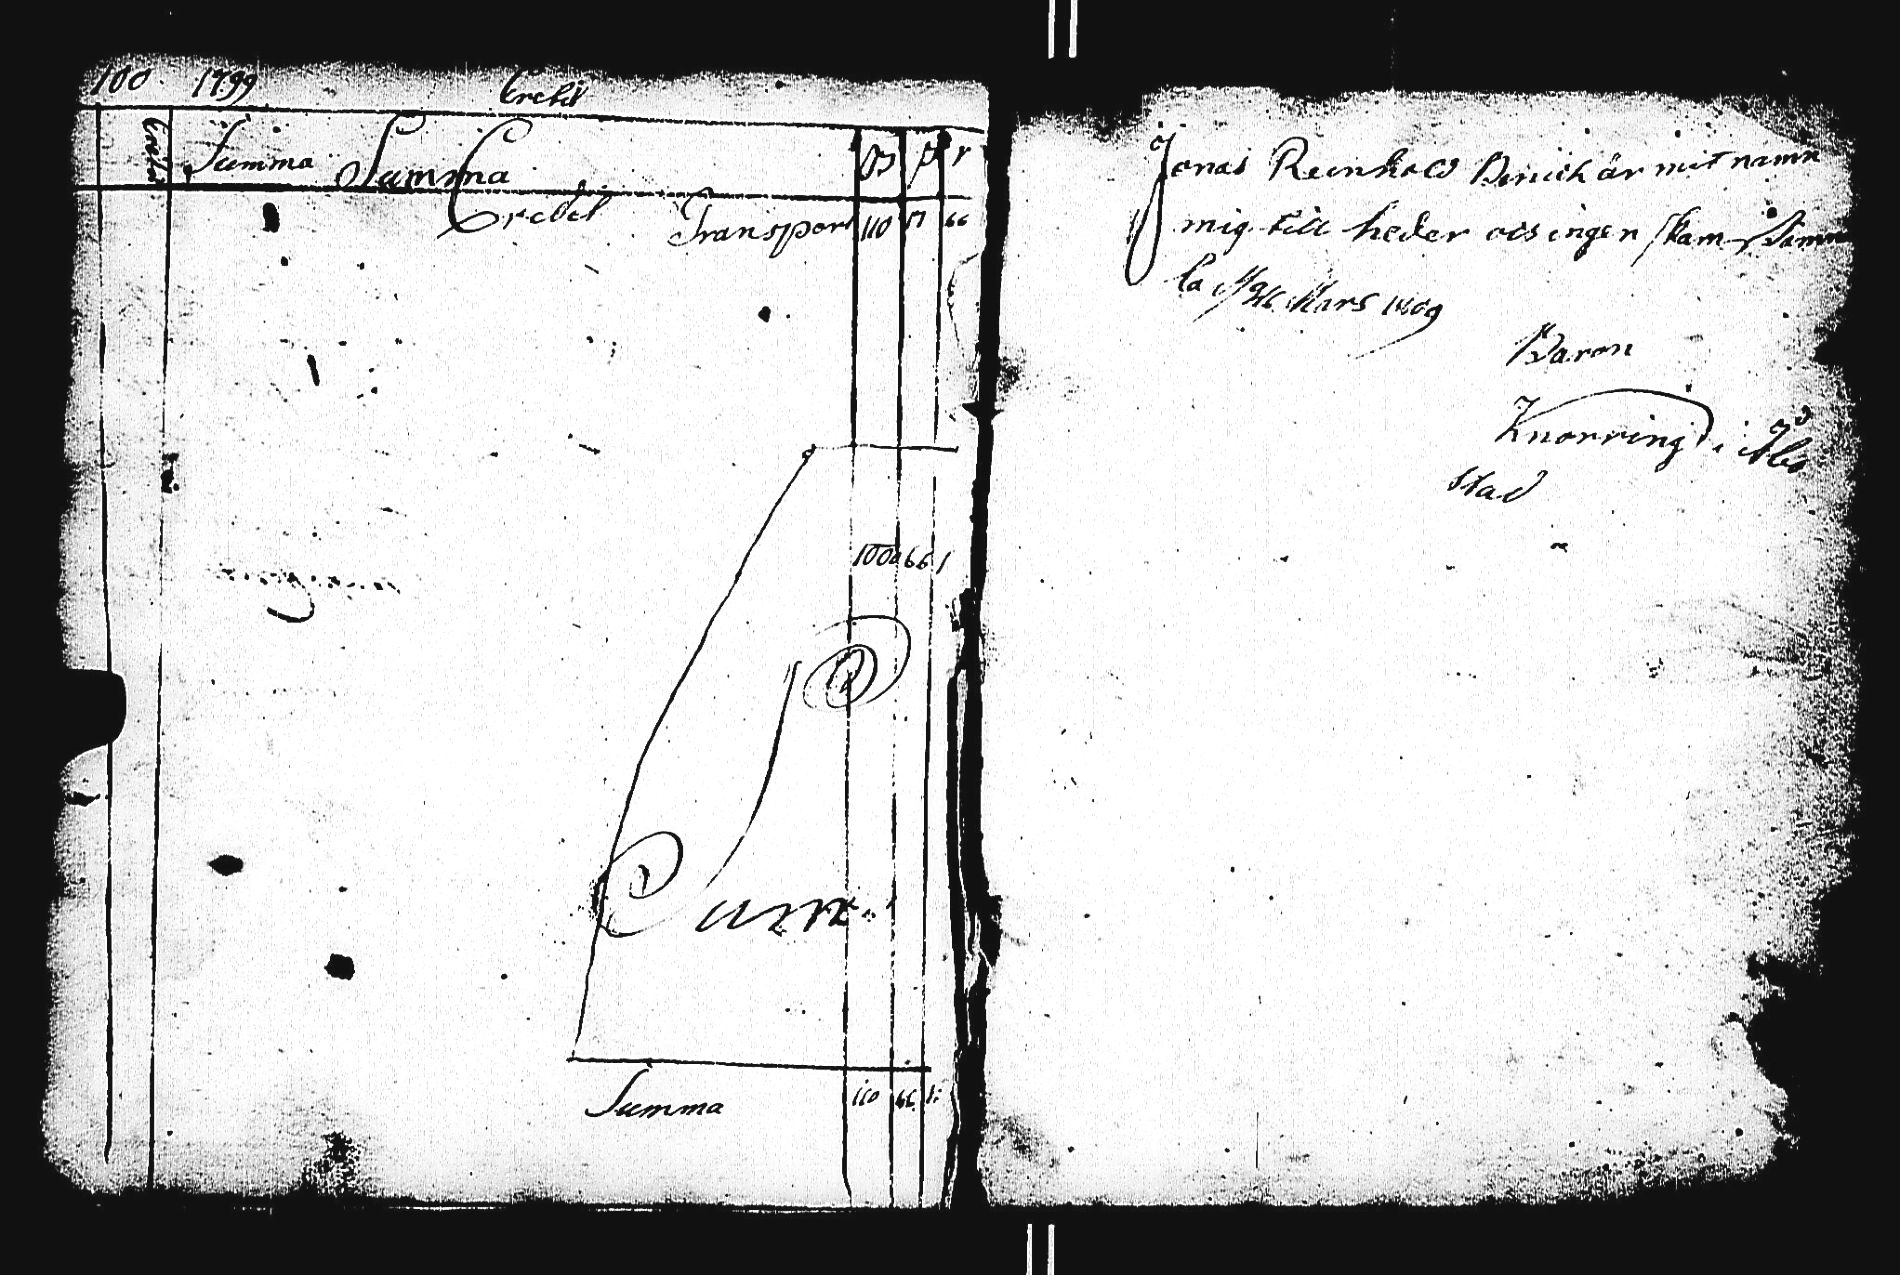 100 1799 Credit
Summa Summa
Credit Transport 110 17 66
1000 66 1
Sum
Summa 110 46
Jonas Reinhold är mit namn
mig till heder ois ingen skam
la 26 Mars 1809
Baron
Knorring i Åbo
stad